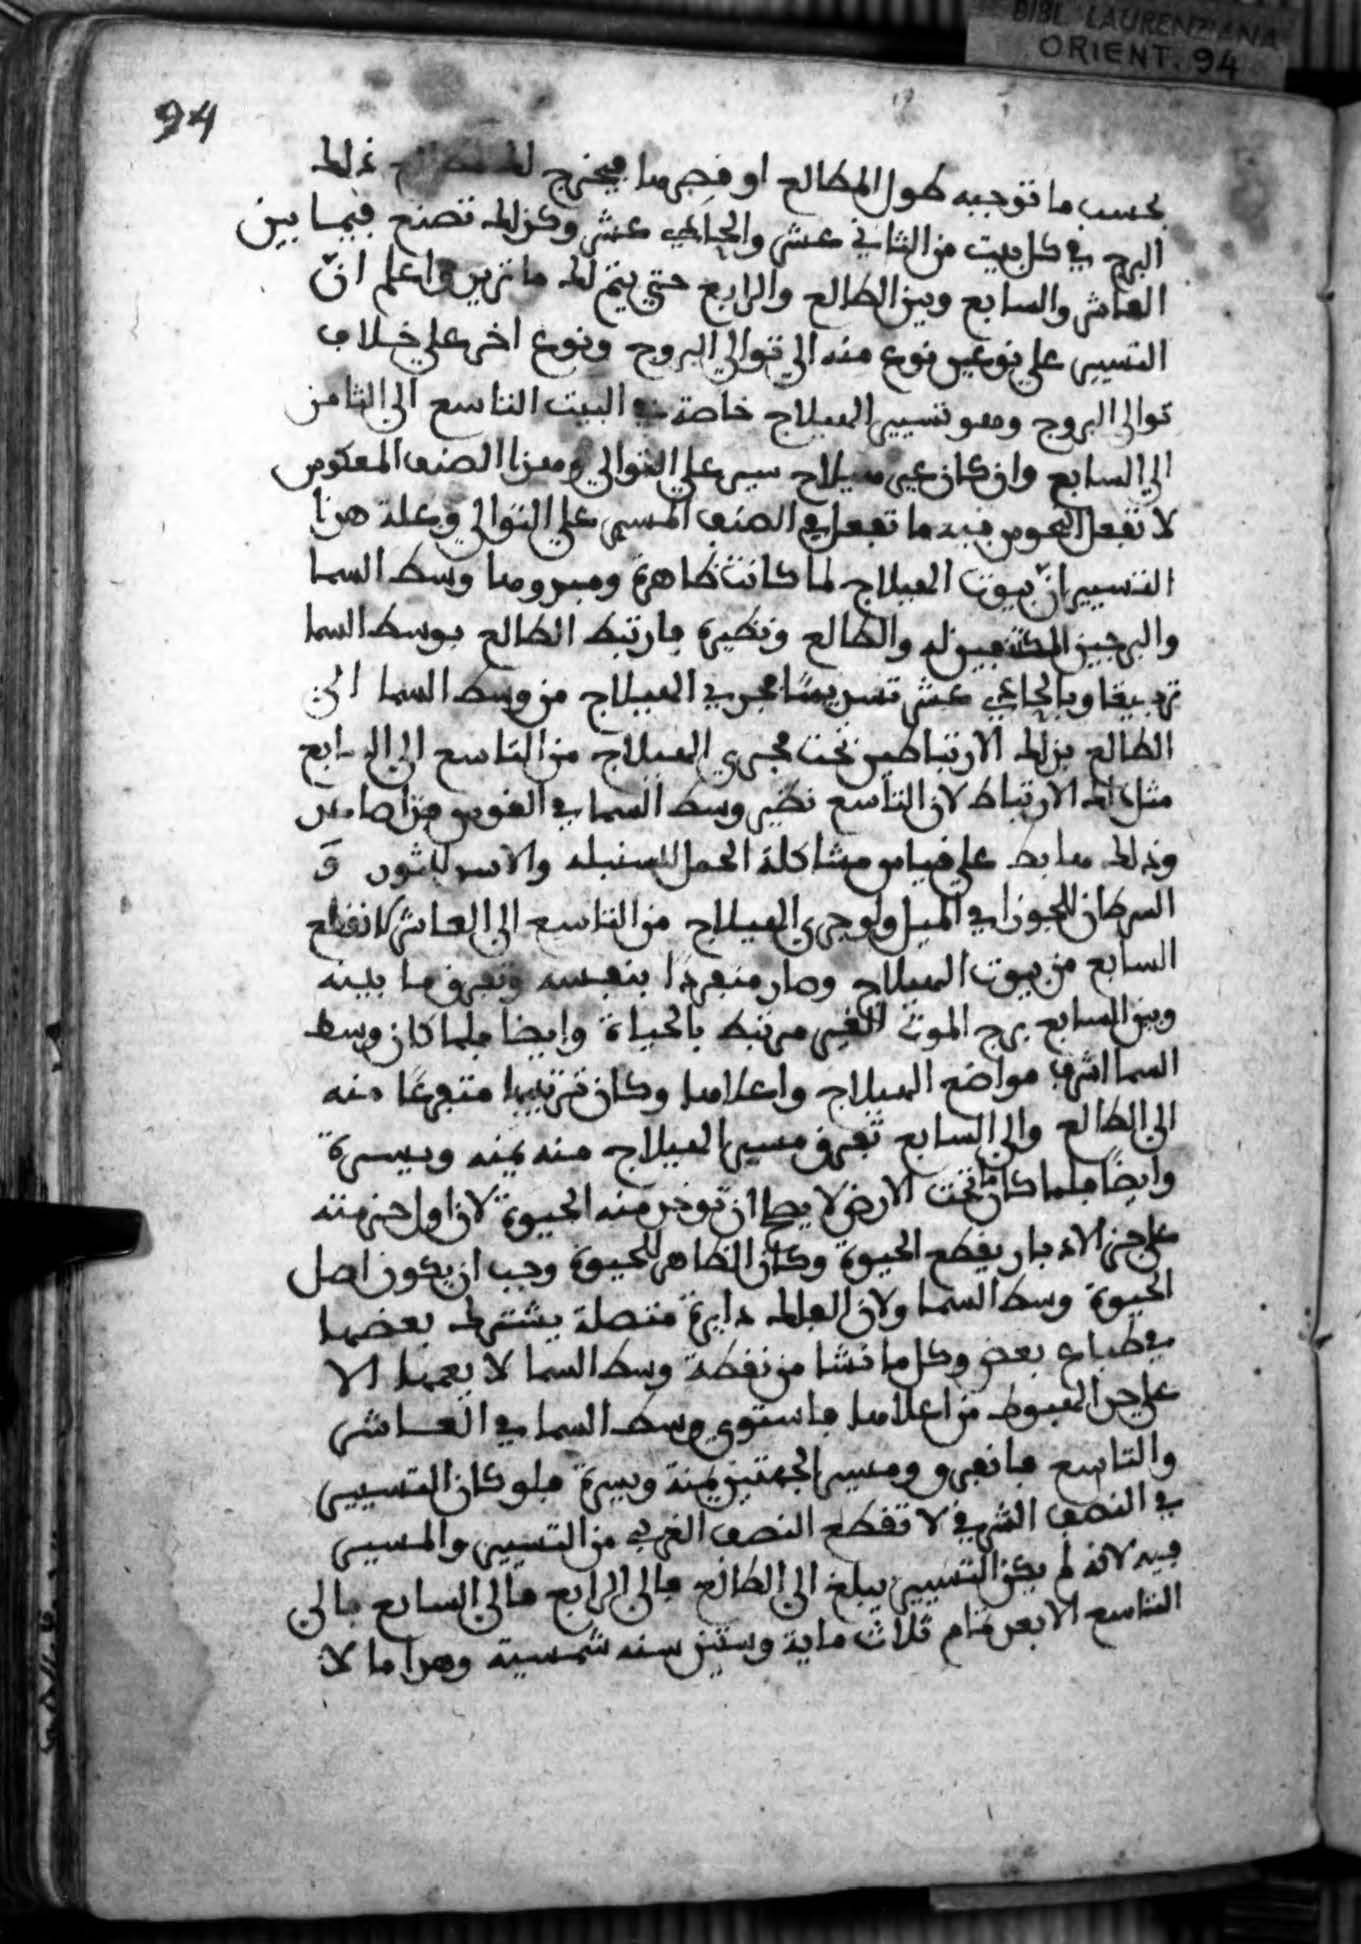 BIBL. LAURENZIANA
ORIENT. 94
94
بحسب ما توجبه طول المطالع او قصرها فيخرج لك ذلك
البرج في كل بيت من الثاني عشر والحادي عشر وكذلك تصنع فيما بين
العاشر والسابع وبين الطالع والرابع حتى يتم لك ما تريد واعلم انّ
التسيير على نوعين نوع منه الى توالي البروج ونوع اخر على خلاف
توالي البروج وهو تسيير الهيلاج خاصة في البيت التاسع الى الثامن
الى السابع وان كان غير هيلاج سير على التوالي وهذا الصنف المعكوس
لا تفعل النحوس فيه ما تفعل في الصنف المسير على التوالي وعلة هذا
التسيير انّ بيوت الهيلاج لما كانت ظاهرة ومبدوها وسط السما
والبرجين المكتنفين له والطالع ونظيره فارتبط الطالع بوسط السما
تربيعا وبالحادي عشر تسديسًا فجرى الهيلاج من وسط السما الى
الطالع بذلك الارتباط من تحت مجرى الهيلاج من التاسع الى السابع
مثل ذلك الارتباط لان التاسع نظير وسط السما في القوس من
وذلك على قياس مشاكلة الحمل للسنبله والاسد للثور وَ
السرطان للجوزا في الميل ولو جرى الهيلاج من التاسع الى العاشر لانقطع
السابع من بيوت الهيلاج وصار منفردًا بنفسه وتفرق ما بينه
وبين السابع برج الموت الغير مرتبط بالحياة وايضا فلما كان وسط
السما اشرف مواضع الهيلاج واعلاها وكان ترتيبها متفرعًا منه
الى الطالع والى السابع تفرق مسير الهيلاج منه يمنه ويسرة
وايضًا فلما كان ما تحت الارض لا يصلح ان توخذ منه الحيوة لان اول جز منه
على جز الادبار يقطع الحيوة وكان الظاهر للحيوة وجب ان يكون اصل
الحيوة وسط السما ولان الفلك دايرة متصلة يشترك بعضها
في طباع بعض وكل ما نشا من نقطة وسط السما لا يعمها الا
على جز الهبوط من اعلاها فاستوى وسط السما في العاشر
والتاسع فانفرد ومسير الجهتين يمنة ويسرة فلو كان التسيير
في النصف الشرقي لا تقطع النصف الغربي من التسيير والمسير
فيه لانه لم يكن التسيير يبلغ الى الطالع فالى الرابع فالى السابع فالى
التاسع الا بعد تمام ثلاث ماية وستين سنه شمسية وهذا ما لا